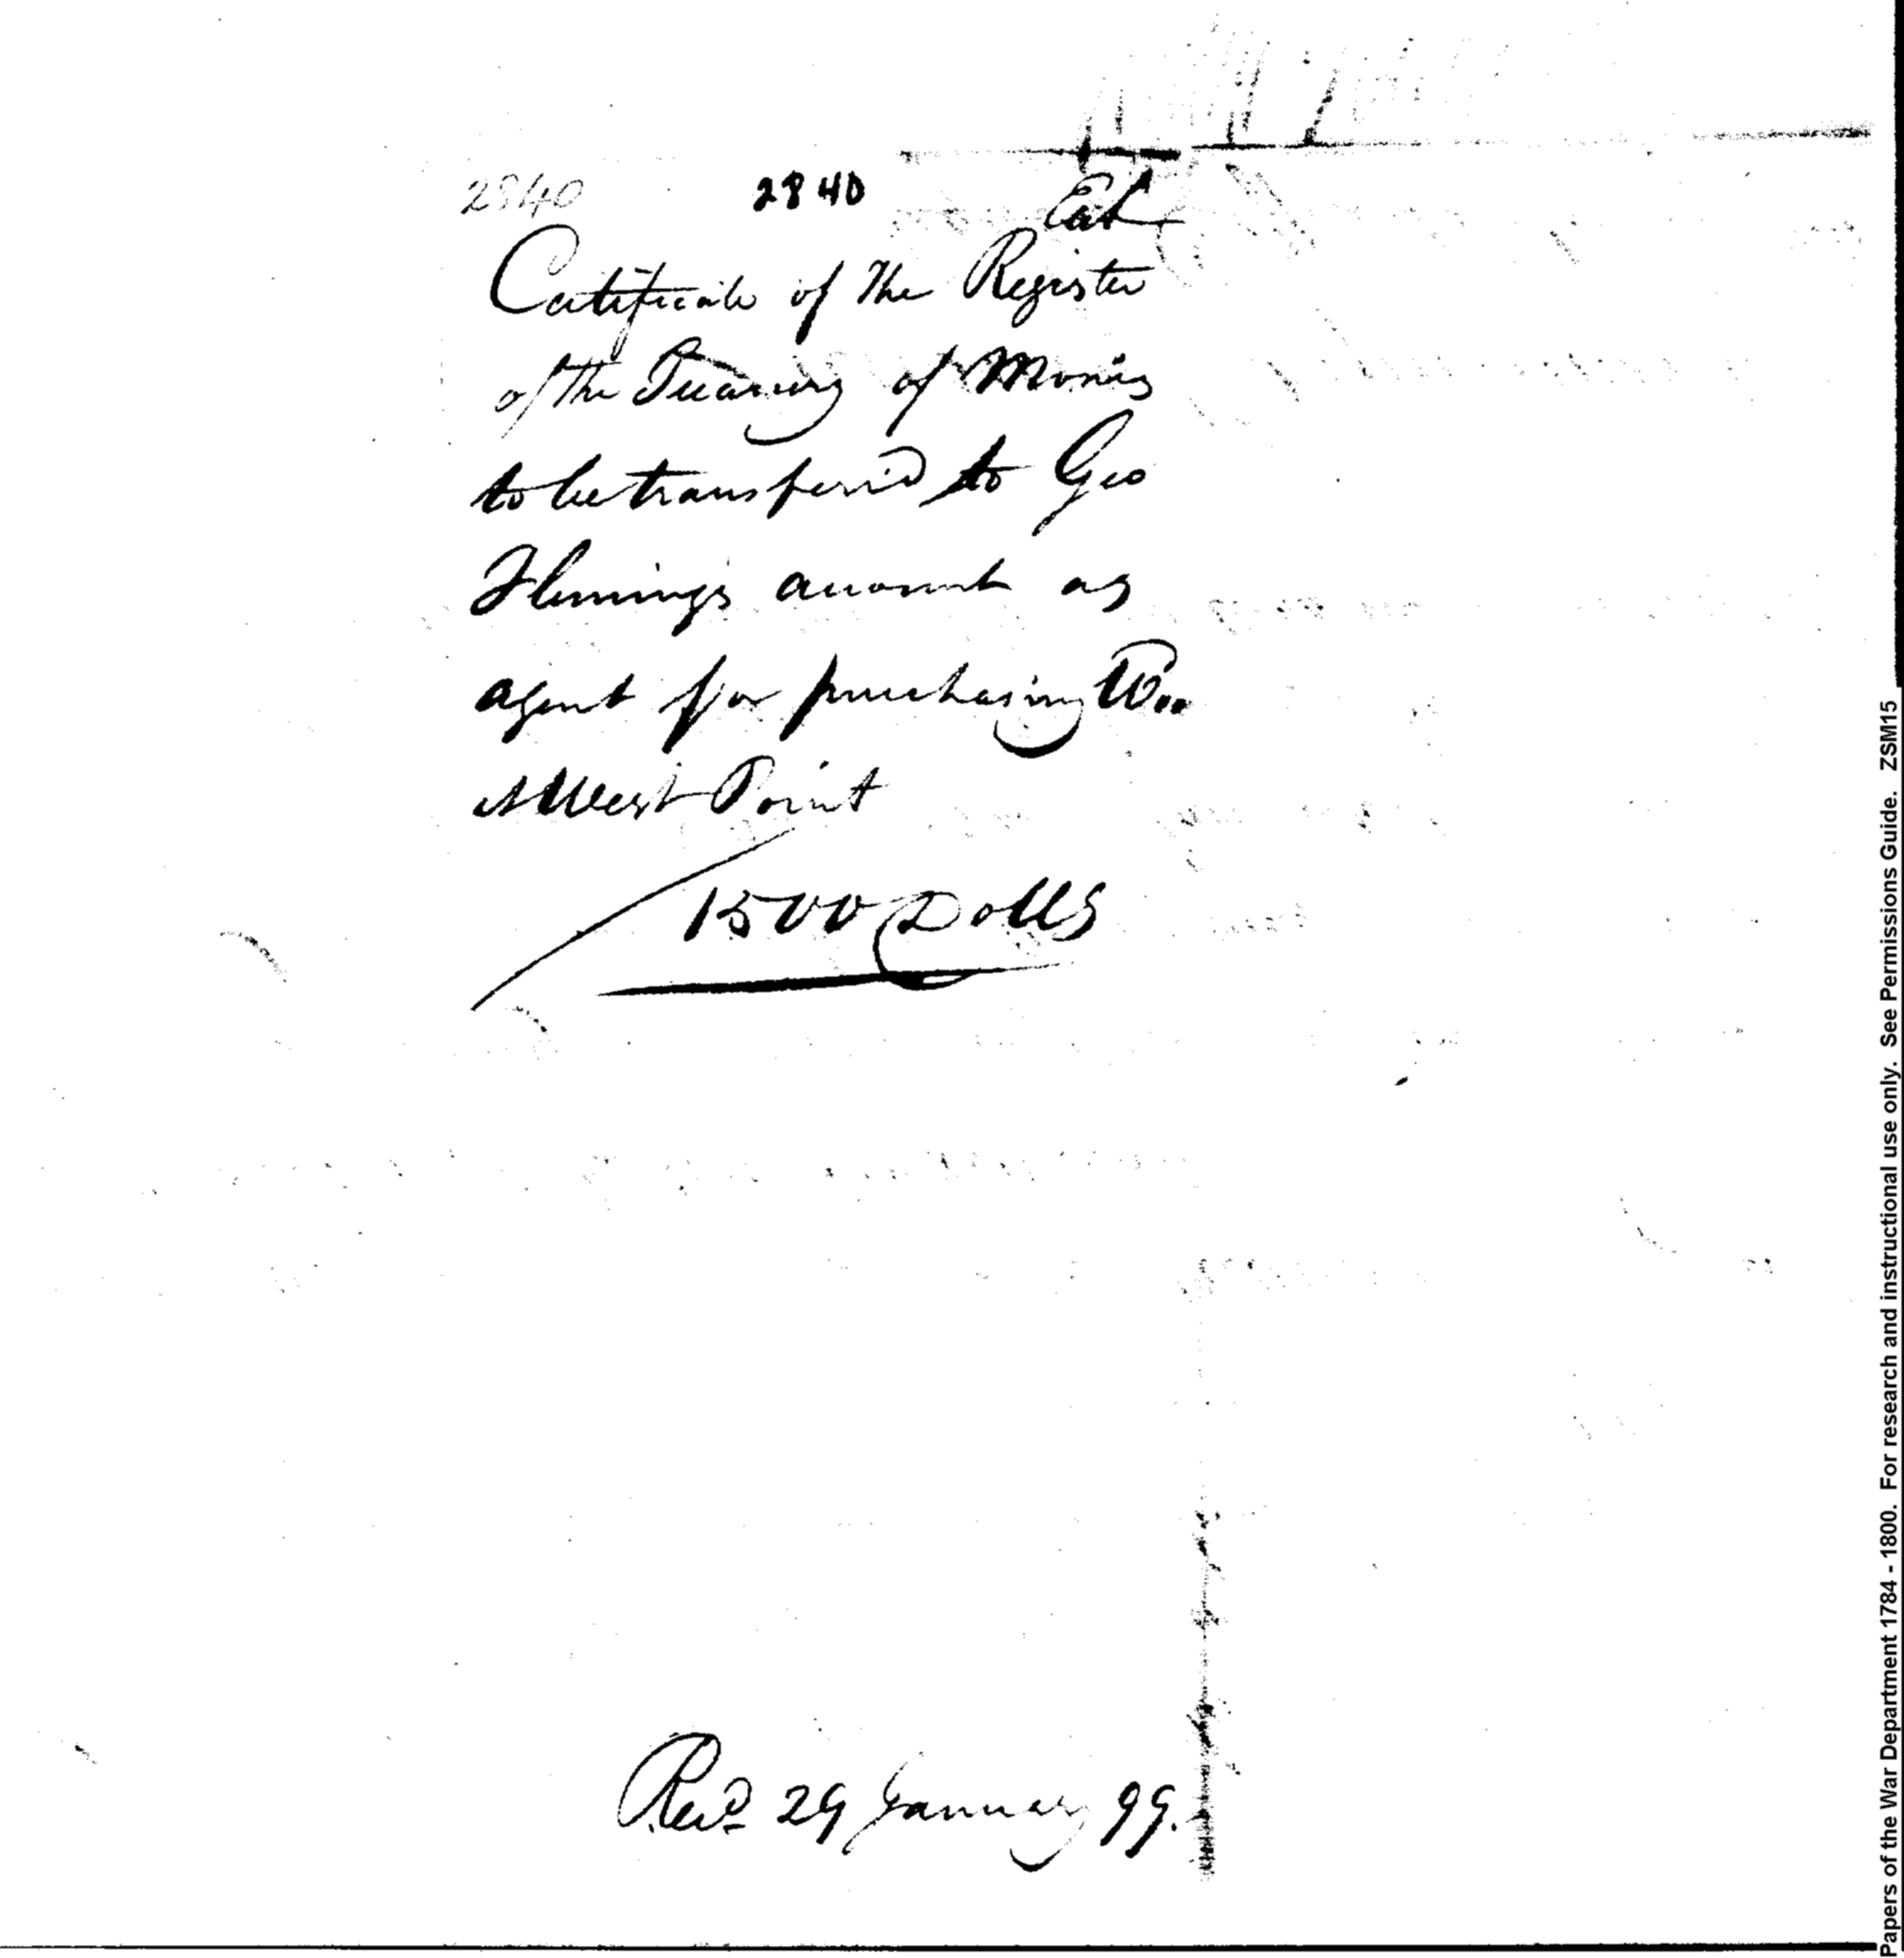 2840 2840 Ent
Certificate of the Register
of the Treasury of Monies
to be transferrd to Geo
Flemings account as
agent for purchasing &c
at West Point
1500 Dolls
Recd. 29 January 99.
Papers of the War Department 1784 - 1800. For research and instructional use only. See Permissions Guide. ZSM15